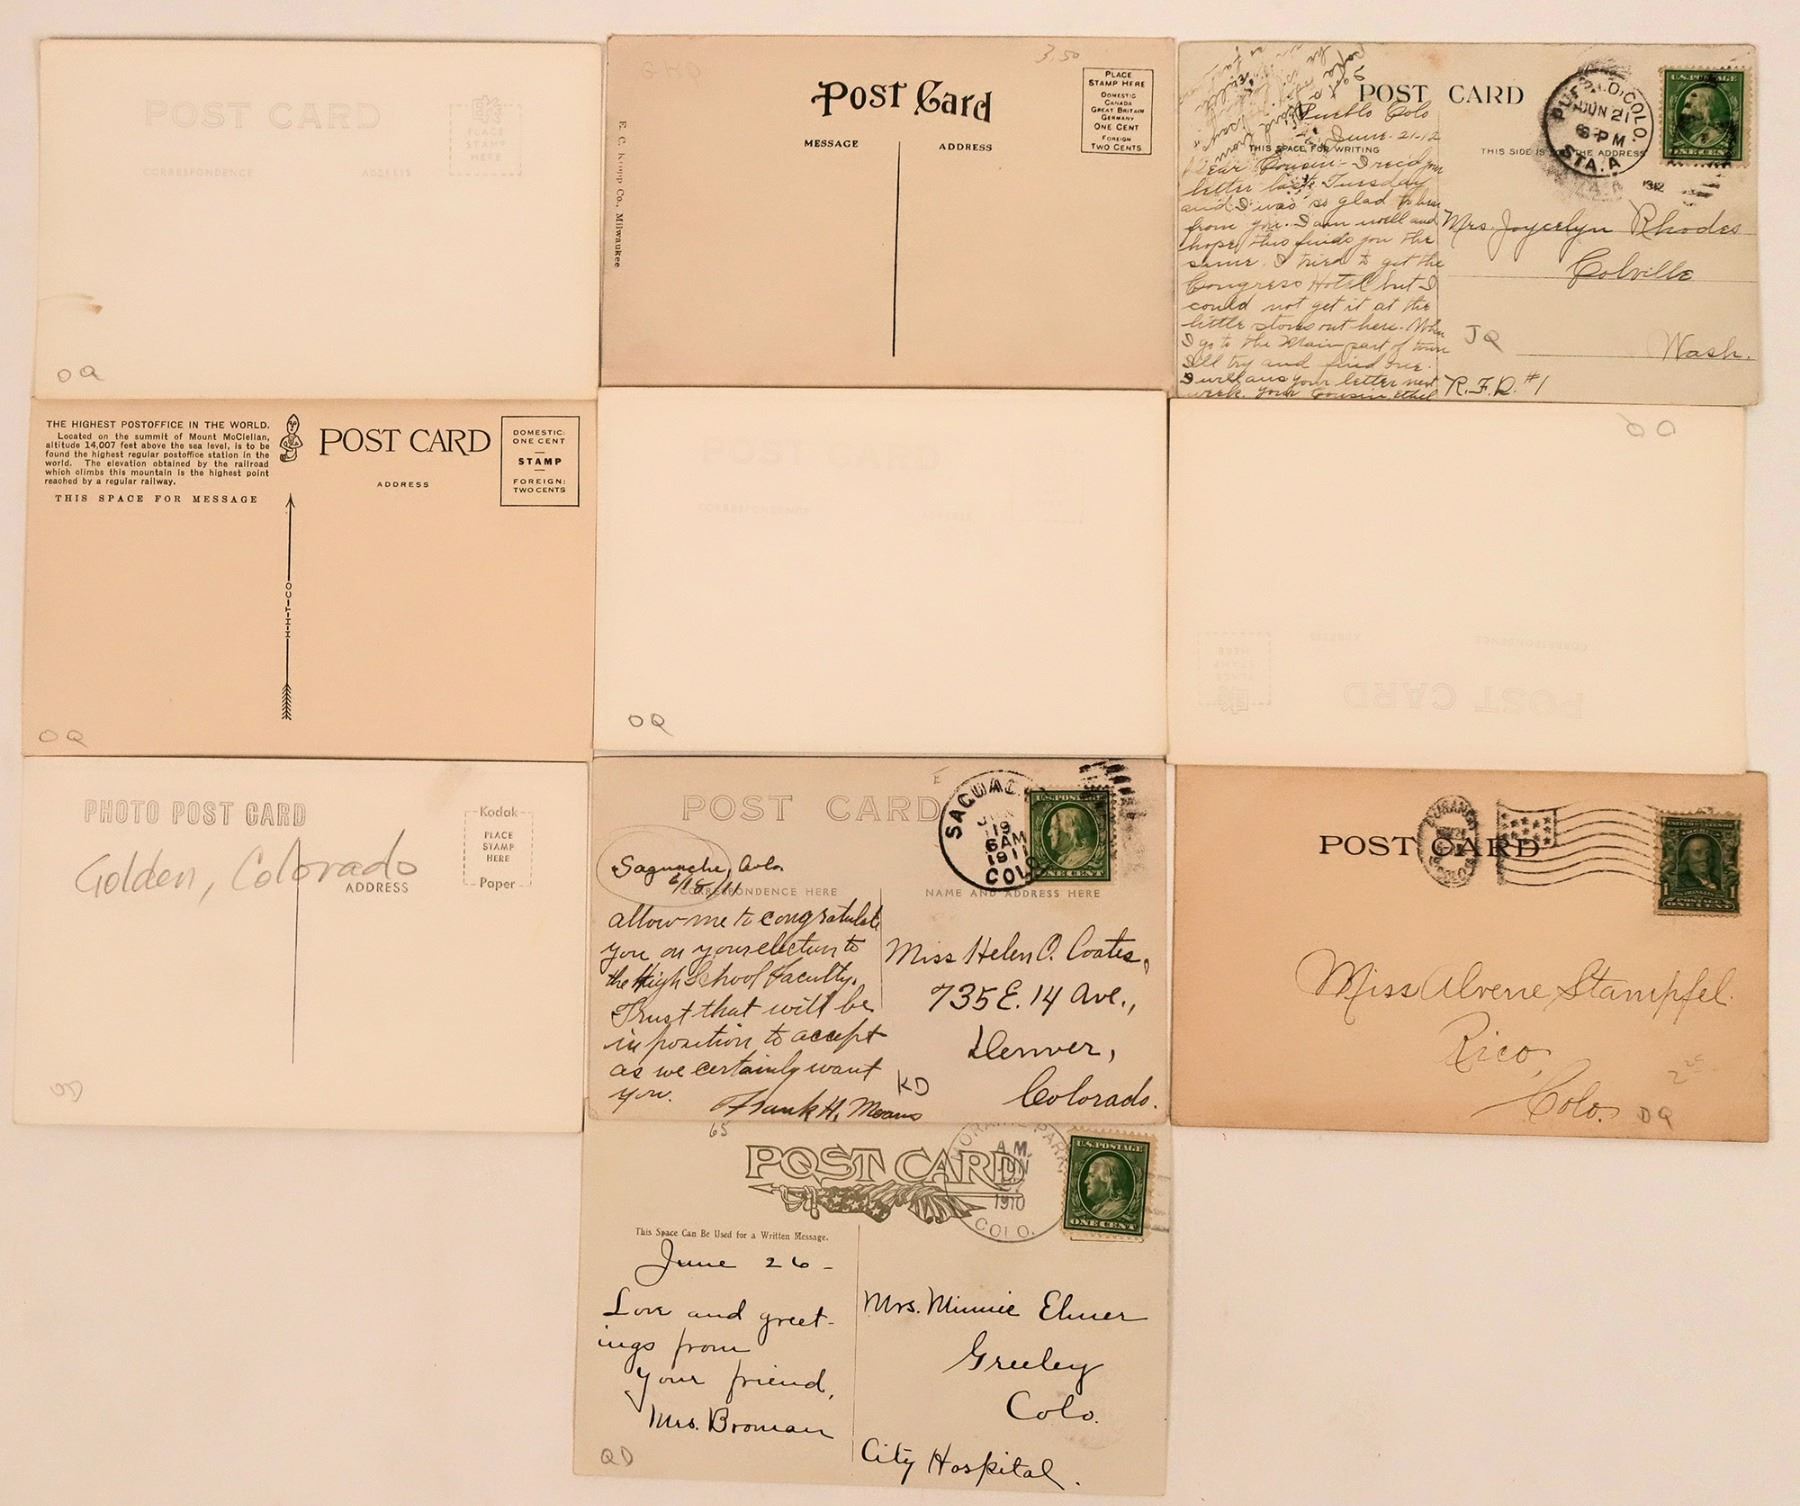 POST CARD
PLACE
STAMP
HERE
CORRESPONDENCE
ADDRESS
OQ
3.50
POST Card
PLACE
STAMP HERE
DOMESTIC
CANADA
GREAT BRITAIN
GERMANY
ONE CENT
FOREIGN
TWO CENTS
MESSAGE
ADDRESS
E. C. Kropp Co., Milwaukee
POST CARD
PUEBLO, COLO.
JUN 21
6 PM
STA. A
1912
U.S. POSTAGE
ONE CENT
Pueblo Colo
June. 21-12
THIS SPACE FOR WRITING
THIS SIDE IS FOR THE ADDRESS
Dear Cousin- I rec'd your
letter last Tuesday
and I was so glad to hear
from you. I am well and
hope this finds you the
same. I tried to get the
Congress Hotel but I
could not get it at the
little stores out here. When
I go to the Main part of town
I'll try and find one.
I will ans your letter next
week. Your Cousin. Ethel
Mrs. Joycelyn Rhodes
Colville
Wash.
R.F.D. #1
JQ
THE HIGHEST POSTOFFICE IN THE WORLD.
Located on the summit of Mount McClellan,
altitude 14,007 feet above the sea level, is to be
found the highest regular postoffice station in the
world. The elevation obtained by the railroad
which climbs this mountain is the highest point
reached by a regular railway.
THIS SPACE FOR MESSAGE
POST CARD
ADDRESS
DOMESTIC:
ONE CENT
STAMP
FOREIGN:
TWO CENTS
H-H-T-CO
OQ
POST CARD
CORRESPONDENCE
ADDRESS
OQ
OQ
CORRESPONDENCE
ADDRESS
PLACE
STAMP
HERE
POST CARD
PHOTO POST CARD
Golden, Colorado
ADDRESS
Kodak
PLACE
STAMP
HERE
Paper
QD
POST CARD
SAGUAC
JUN
19
6 AM
1911
COLO
U.S. POSTAGE
ONE CENT
Saguache, Colo.
6/18/11
CORRESPONDENCE HERE
NAME AND ADDRESS HERE
Allow me to congratulate
you on your election to
the High School Faculty.
Trust that will be
in position to accept
as we certainly want
you.
Frank H. Means
Miss Helen O. Coates,
735 E. 14 Ave.,
Denver,
Colorado.
KD
POST CARD
DURANGO
COLO.
ONE CENT
Miss Alvene Stampfel.
Rico,
Colo.
DQ
65
POST CARD
MORAINE PARK
A.M.
1910
COLO.
U.S. POSTAGE
ONE CENT
This Space Can Be Used for a Written Message.
June 26-
Love and greet-
ings from
your friend,
Mrs. Broman
Mrs. Minnie Elmer
Greeley
Colo.
City Hospital.
QD